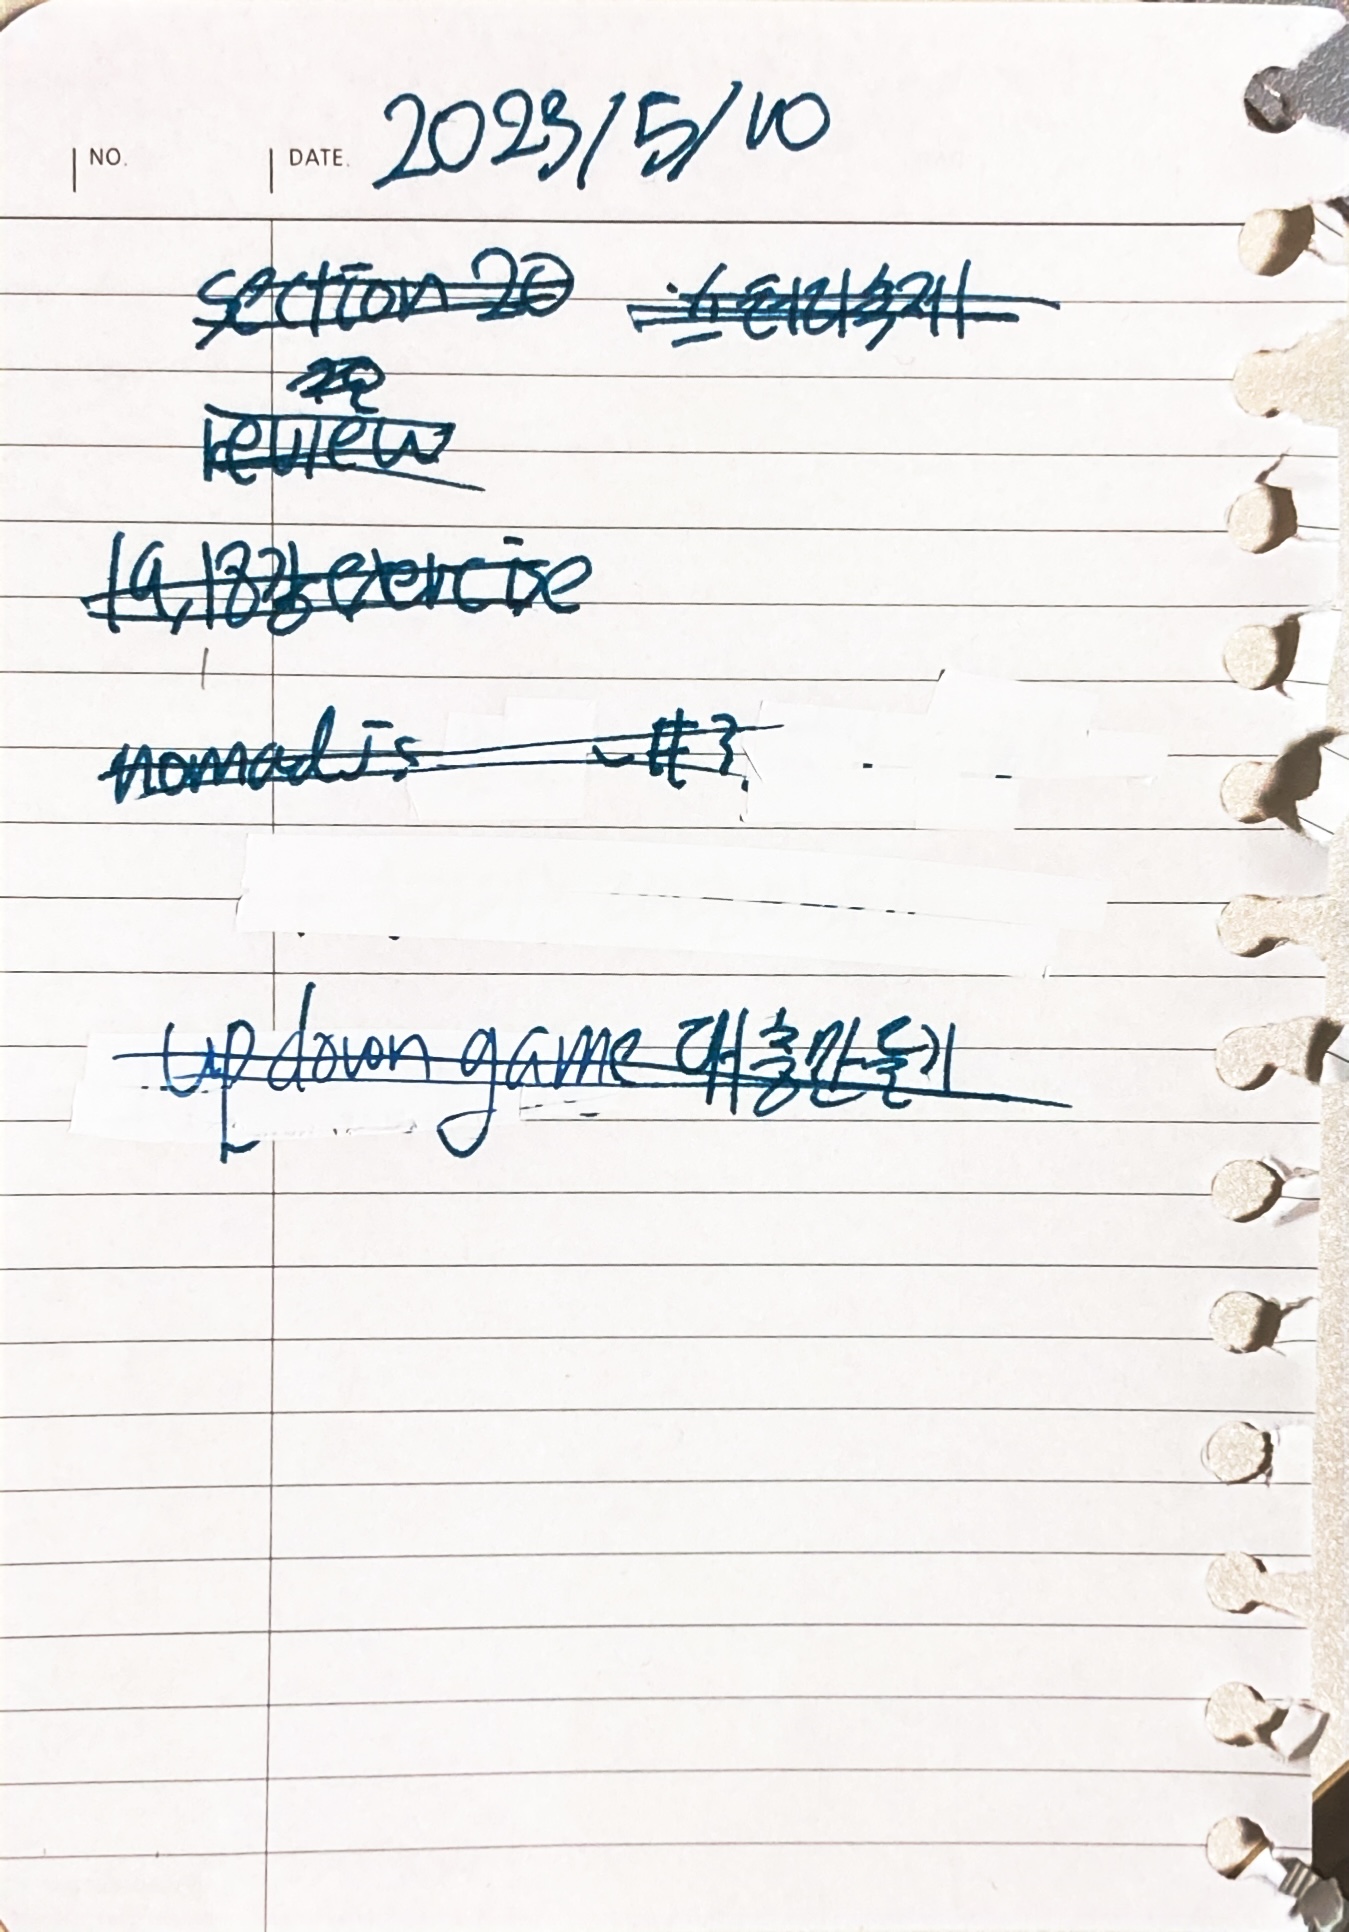 NO. DATE. 2023/5/10
section 20
review
19, 18강 exercise
nomad js #3
up down game 대충만들기